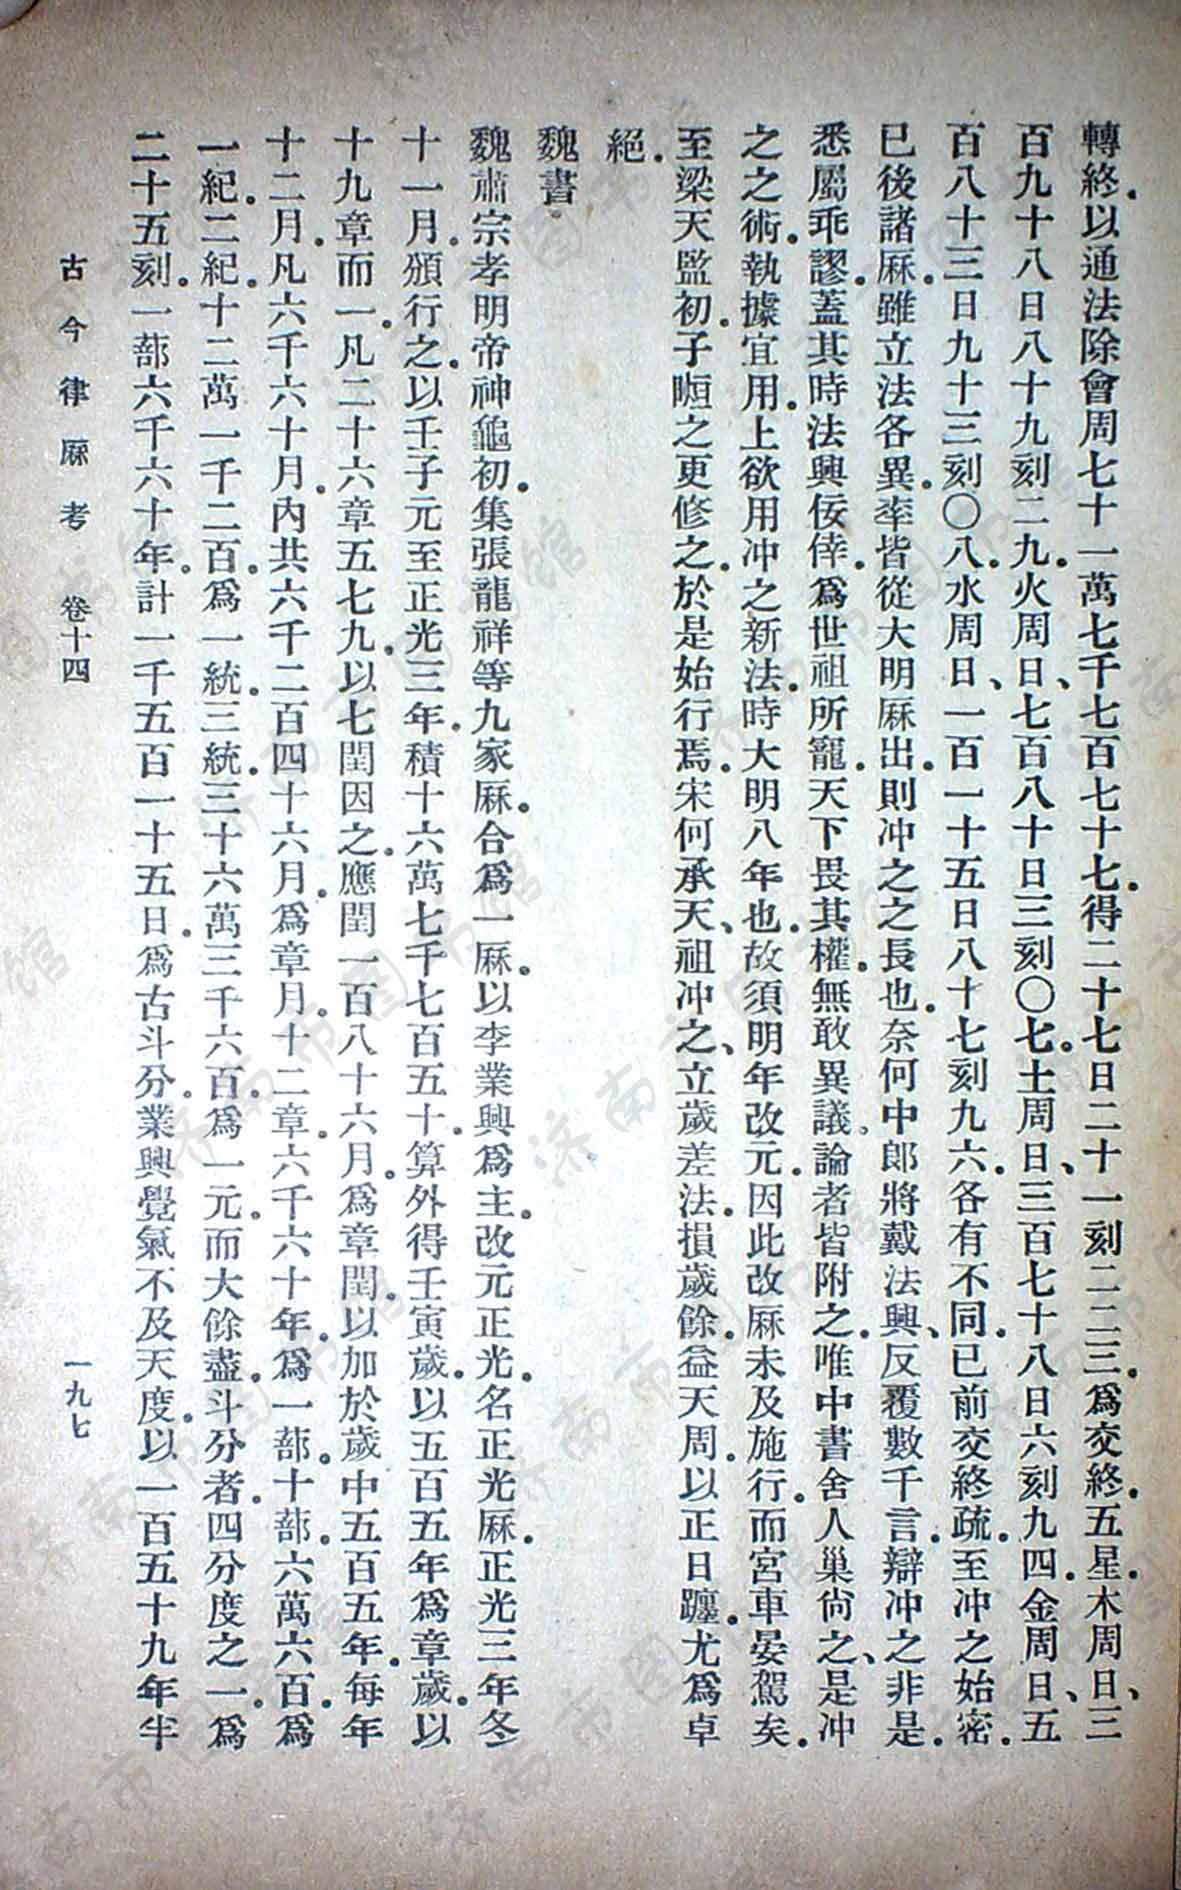 轉終以通法除會周七十一萬七千七百七十七得二十七日二十一刻二二三爲交終五星木周日三
百九十八日八十九刻二九火周日七百八十日三刻〇七土周日三百七十八日六刻九四金周日五
百八十三日九十三刻〇八水周日一百一十五日八十七刻九六各有不同已前交終疏至冲之始密
已後諸厤雖立法各異率皆從大明厤出則冲之之長也奈何中郎將戴法興反覆數千言辯冲之非是
悉屬乖謬蓋其時法興佞倖爲世祖所寵天下畏其權無敢異議論者皆附之唯中書舍人巢尙之是冲
之之術執據宜用上欲用冲之新法時大明八年也故須明年改元因此改厤未及施行而宮車晏駕矣
至梁天監初子暅之更修之於是始行焉宋何承天祖冲之立歲差法損歲餘益天周以正日躔尤爲卓
絕
魏書
魏肅宗孝明帝神龜初集張龍祥等九家厤合爲一厤以李業興爲主改元正光名正光厤正光三年冬
十一月頒行之以壬子元至正光三年積十六萬七千七百五十算外得壬寅歲以五百五年爲章歲以
十九章而一凡二十六章五七九以七閏因之應閏一百八十六月爲章閏以加於歲中五百五年每年
十二月凡六千六十月內共六千二百四十六月爲章月十二章六千六十年爲一蔀十蔀六萬六百爲
一紀二紀十二萬一千二百爲一統三統三十六萬三千六百爲一元而大餘盡斗分者四分度之一爲
二十五刻一蔀六千六十年計一千五百一十五日爲古斗分業興覺氣不及天度以一百五十九年半
古今律厤考 卷十四 一九七